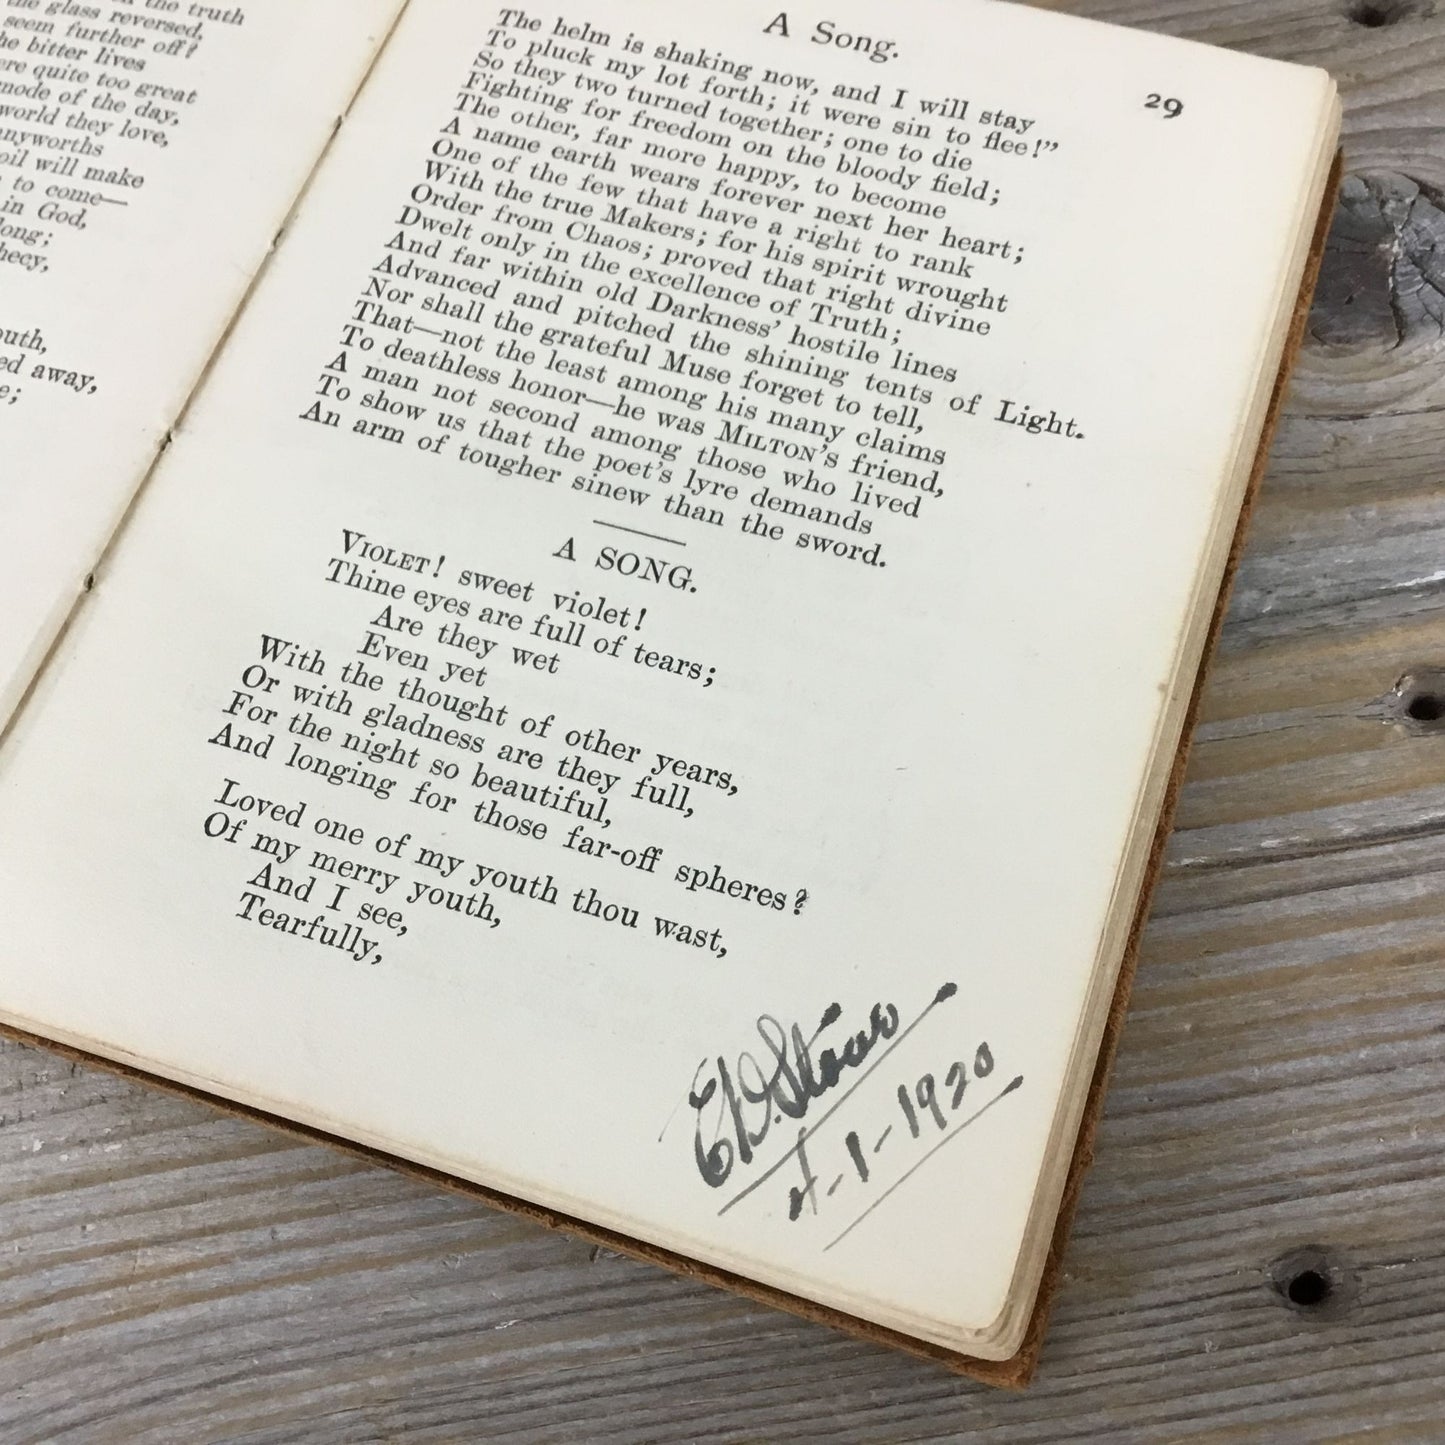 the truth
the glass reversed,
seem further off?
he bitter lives
ere quite too great
mode of the day,
world they love,
nyworths
oil will make
to come—
in God,
long;
hecy,
outh,
ed away,
e;
A Song.
29
The helm is shaking now, and I will stay
To pluck my lot forth; it were sin to flee!"
So they two turned together; one to die
Fighting for freedom on the bloody field;
The other, far more happy, to become
A name earth wears forever next her heart;
One of the few that have a right to rank
With the true Makers; for his spirit wrought
Order from Chaos; proved that right divine
Dwelt only in the excellence of Truth;
And far within old Darkness' hostile lines
Advanced and pitched the shining tents of Light.
Nor shall the grateful Muse forget to tell,
That—not the least among his many claims
To deathless honor—he was MILTON's friend,
A man not second among those who lived
To show us that the poet's lyre demands
An arm of tougher sinew than the sword.
A SONG.
VIOLET! sweet violet!
Thine eyes are full of tears;
Are they wet
Even yet
With the thought of other years,
Or with gladness are they full,
For the night so beautiful,
And longing for those far-off spheres?
Loved one of my youth thou wast,
Of my merry youth,
And I see,
Tearfully,
4-1-1920